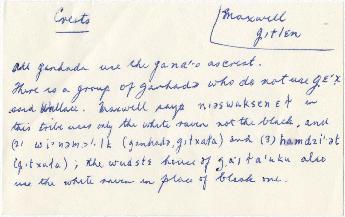 Crests
Maxwell
g.itlEn
All ganhada use the gana'o as crest.
There is a group of ganhadə who do not use g.E'x
said Wallace. Maxwell says niəswuksenEt in
this tribe uses only the white raven not the black, and
(2) wi'nəmɔ'lk (ganhadə, gitxała) and (3) hamdzi'ət
(gitxała); the wudstə house of ga'it'a'uku also
use the white raven in place of black one.